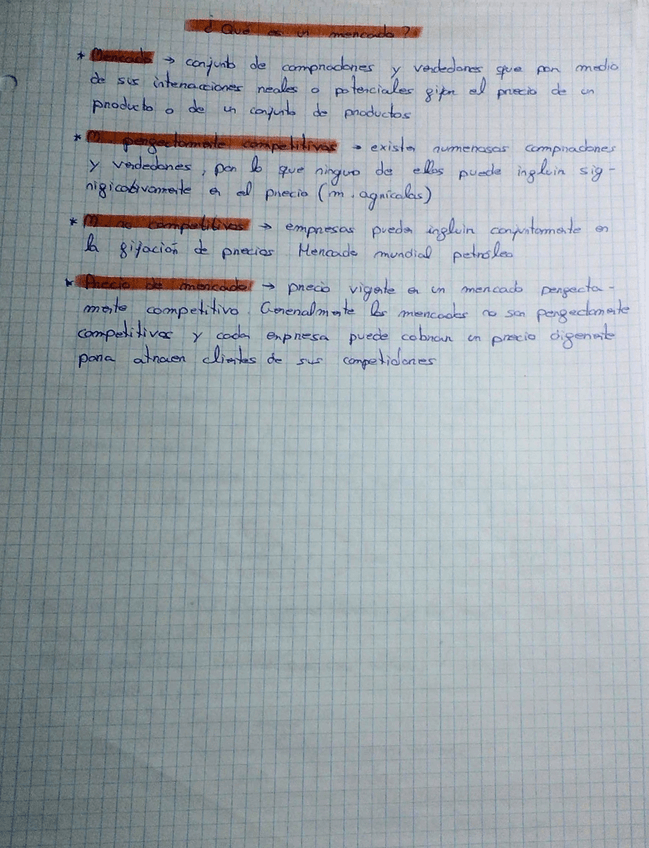 ¿Qué es un mercado?
* Mercado → conjunto de compradores y vendedores que por medio
de sus interacciones reales o potenciales fijan el precio de un
producto o de un conjunto de productos
* M perfectamente competitivos → existen numerosos compradores
y vendedores, por lo que ninguno de ellos puede influir sig-
nificativamente en el precio (m. agrícolas)
* M no competitivos → empresas pueden influir conjuntamente en
la fijación de precios. Mercado mundial petróleo
* Precio de mercado → precio vigente en un mercado perfecta-
mente competitivo. Generalmente los mercados no son perfectamente
competitivos y cada empresa puede cobrar un precio diferente
para atraer clientes de sus competidores